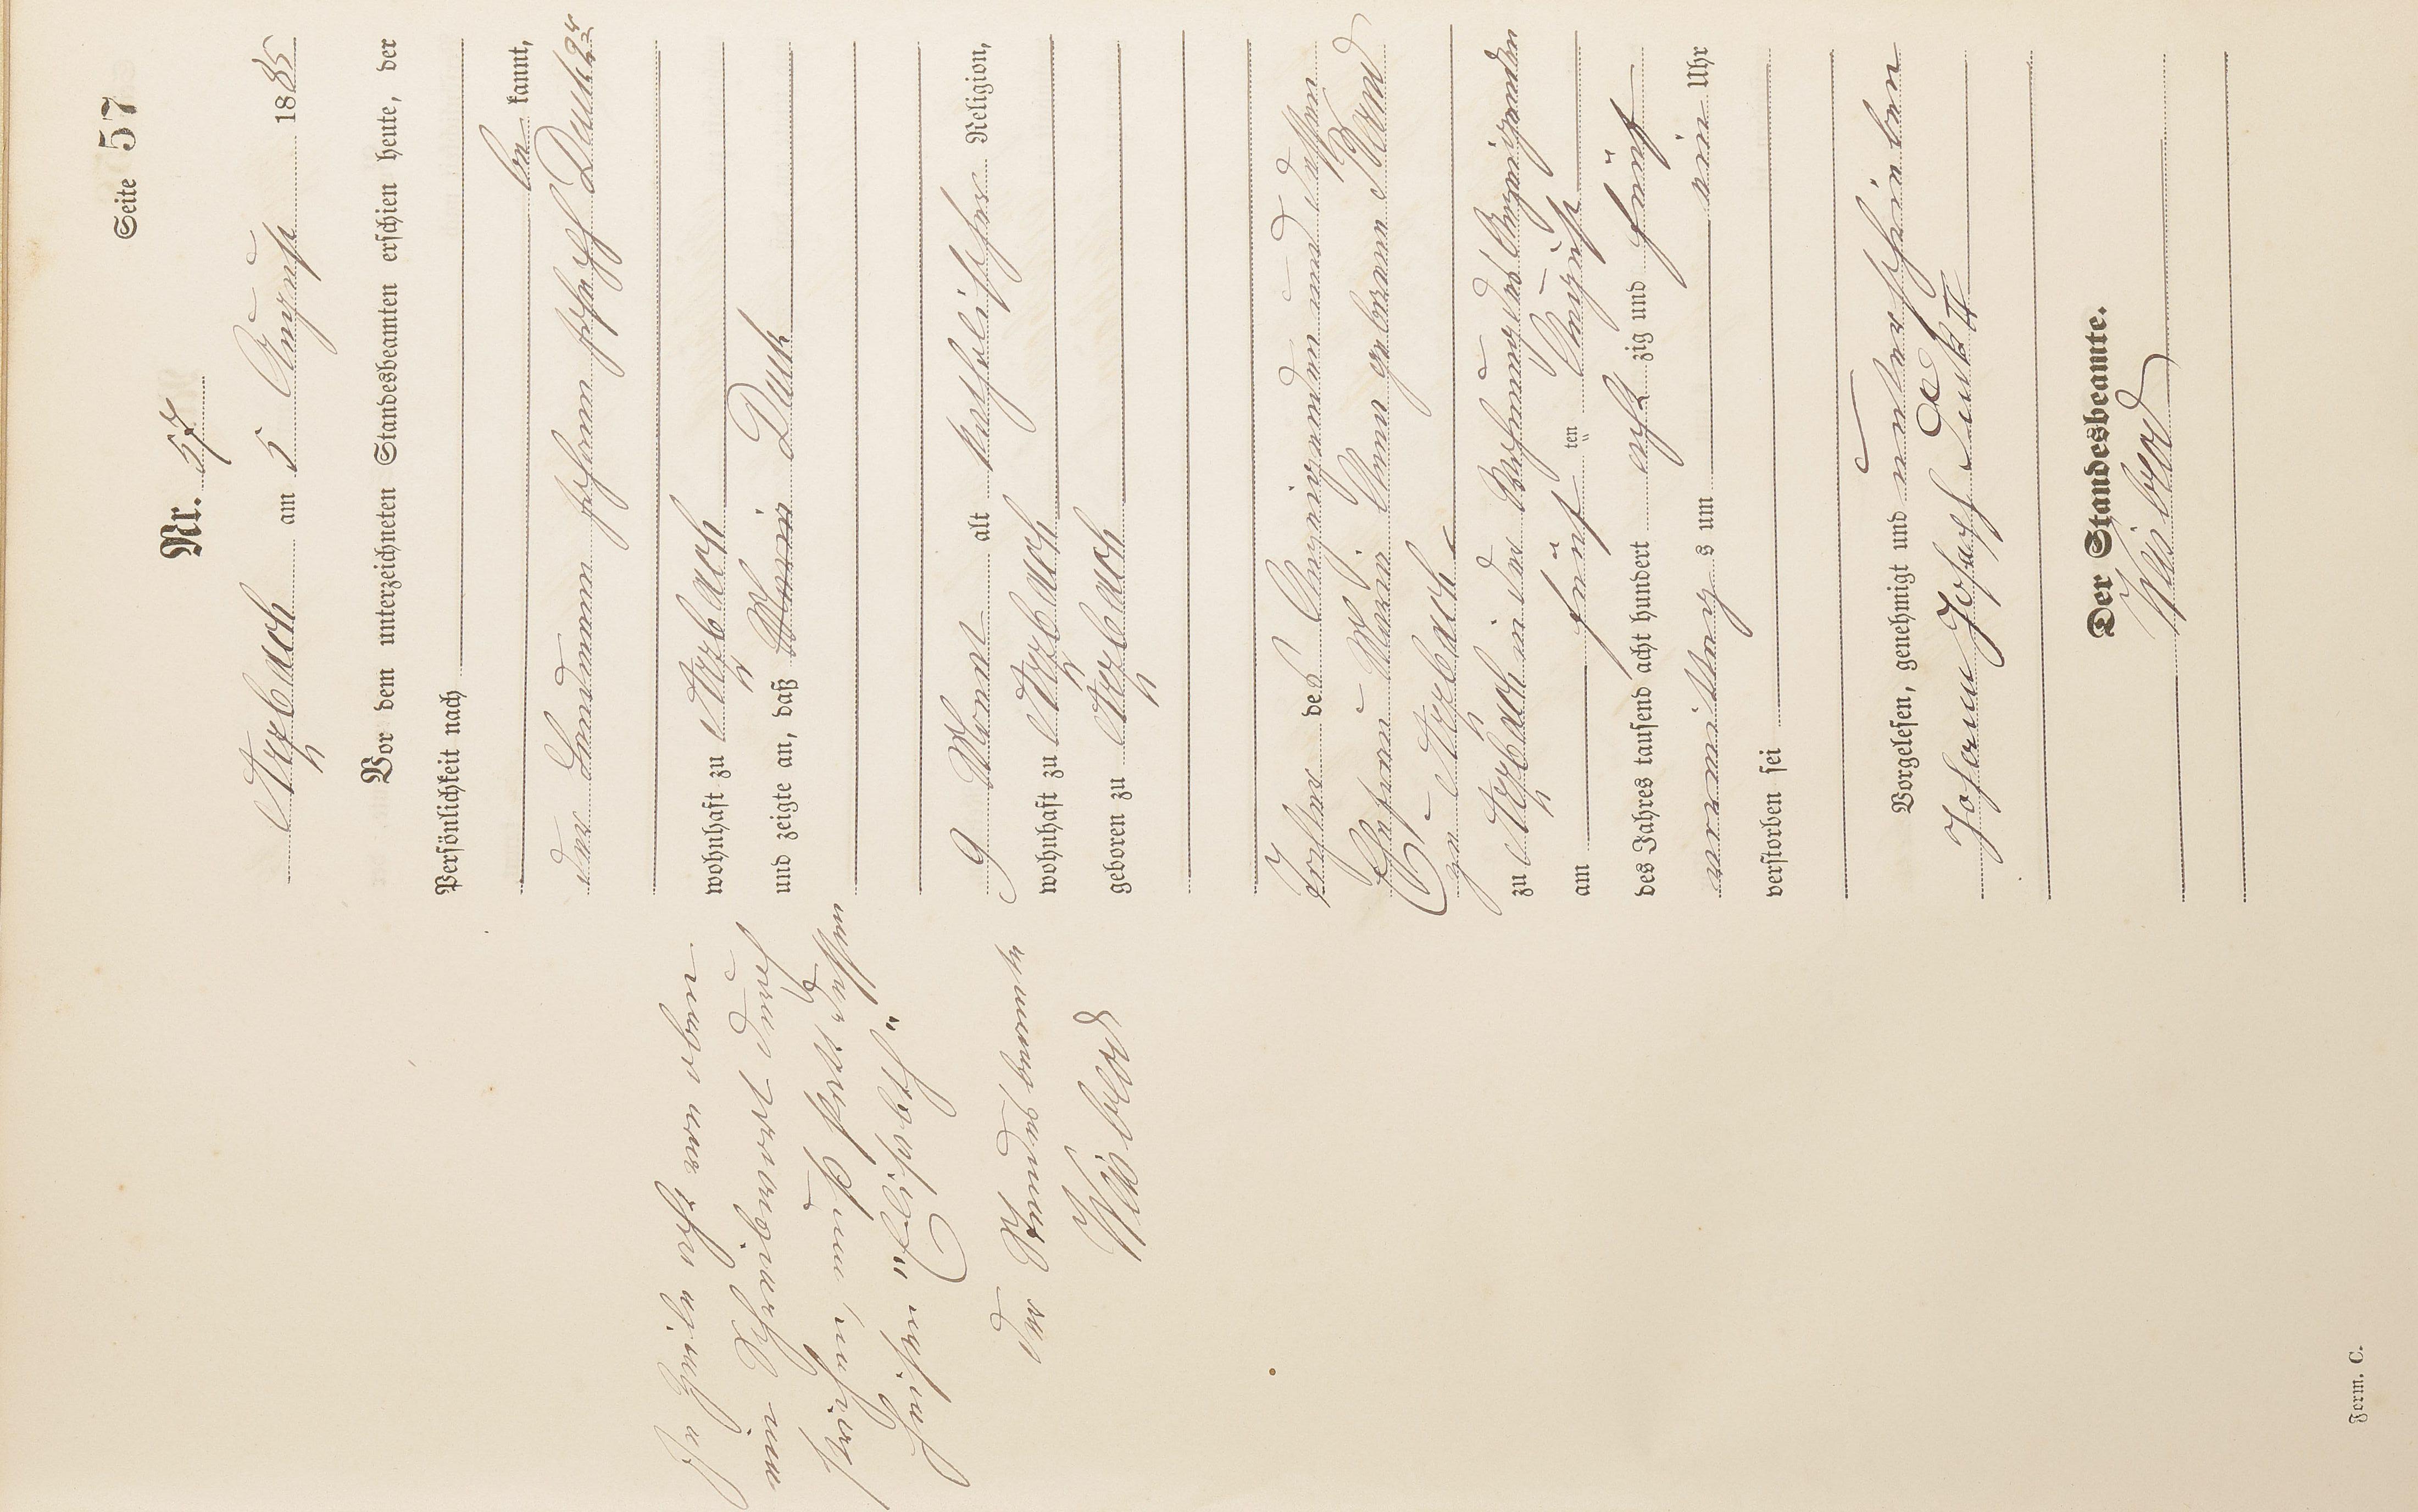 Seite 57
Nr. 57
Arzbach am 5 August 1885
Vor dem unterzeichneten Standesbeamten erschien heute, der
Persönlichkeit nach
be kannt,
der Landmann Johann Joseph Duck 2r
wohnhaft zu Arzbach
und zeigte an, daß Maria Duck
9 Monat alt katholischer Religion,
wohnhaft zu Arzbach
geboren zu Arzbach
Tochter des Anzeigenden und dessen
Ehefrau Maria Anna geborene
zu Arzbach
zu Arzbach in der Wohnung des Anzeigenden
am fünf ten August
des Jahres tausend acht hundert acht zig und fünf
vormittag s um ein Uhr
verstorben sei
Vorgelesen, genehmigt und unterschrieben
Johann Joseph Duck II
Der Standesbeamte.
In Zeile acht von oben
ein Wort durch
"Elisabeth"
Der Standesbeamte
Form. C.